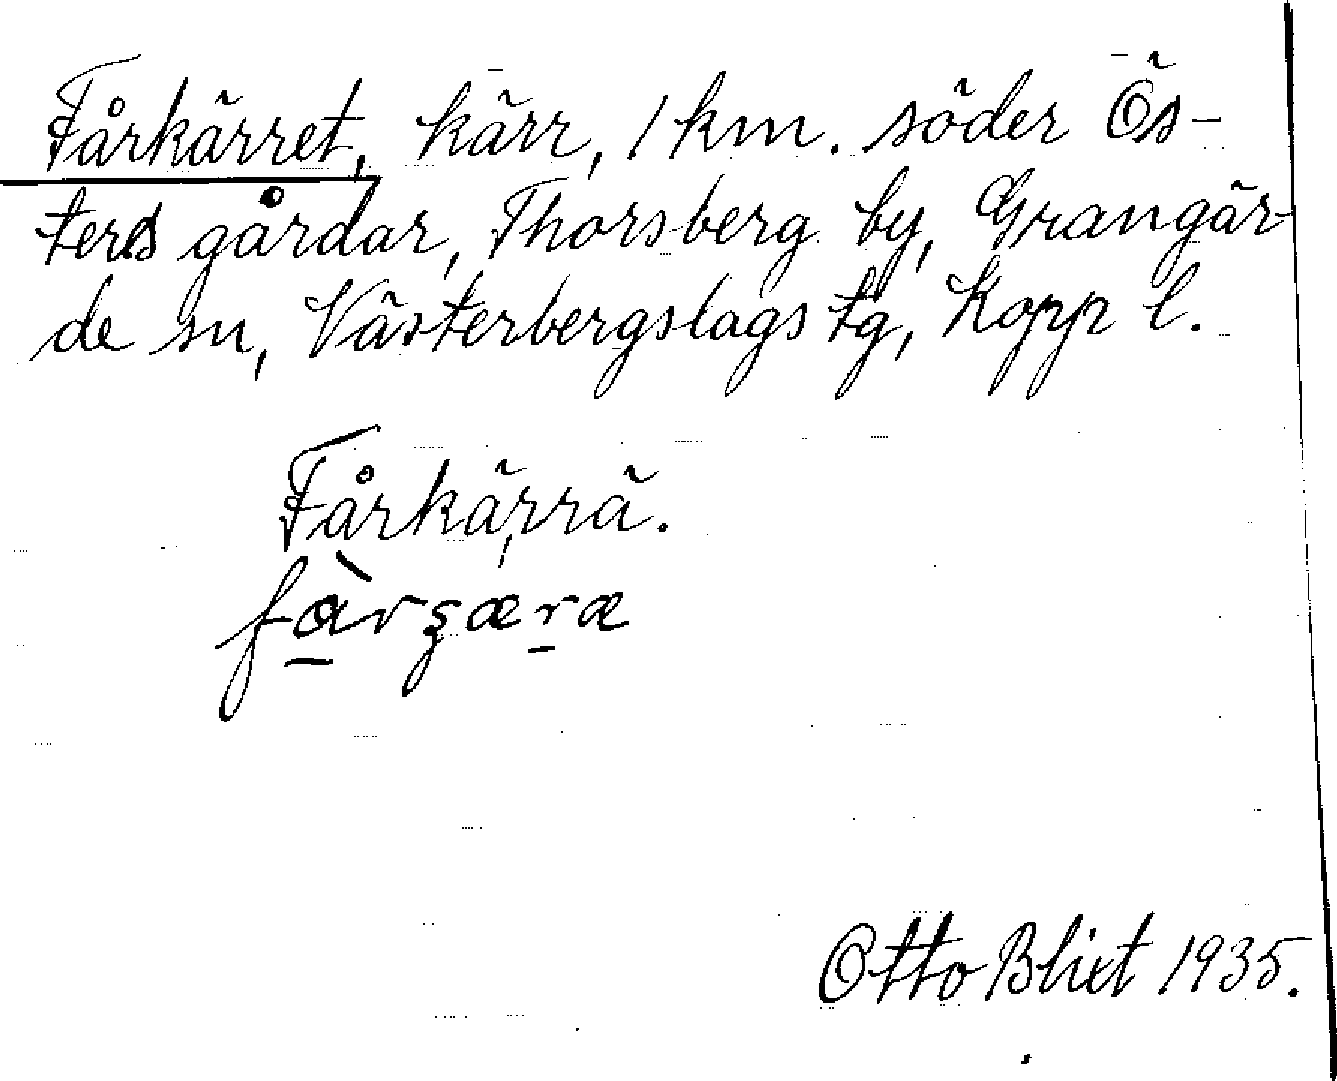 Fårkärret, kärr, 1 km. söder Ös-
ters gårdar, Thorsberg by, Grangär-
de sn, Västerbergslags tg, Kopp l.
Fårkärrä.
Otto Blixt 1935.